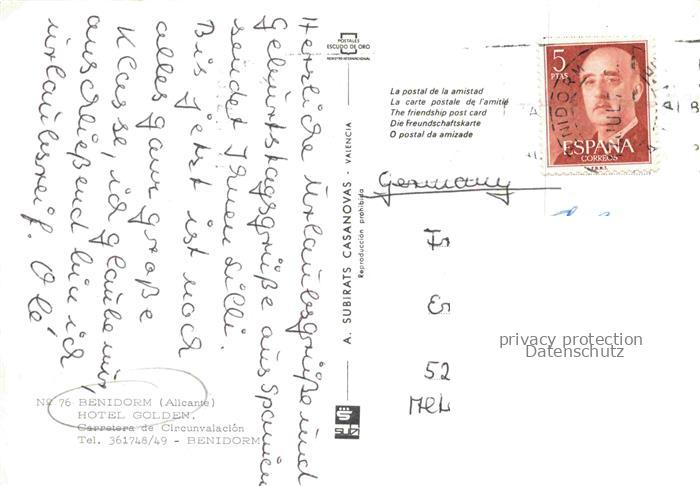 Herrliche Urlaubsgrüße und
Geburtstagsgrüße aus Spanien
sendet Ihnen Lilli.
Bis jetzt ist noch
alles ganz große
Klasse, ich glaube nur,
anschließend bin ich
urlaubsreif. Olé
Nº 76 BENIDORM (Alicante)
HOTEL GOLDEN.
Carretera de Circunvalación
Tel. 361748/49 - BENIDORM
POSTALES
ESCUDO DE ORO
REGISTRO INTERNACIONAL
A. SUBIRATS CASANOVAS - VALENCIA
Reproducción prohibida
La postal de la amistad
La carte postale de l'amitié
The friendship post card
Die Freundschaftskarte
O postal da amizade
5
PTAS
ESPAÑA
CORREOS
Germany
52
privacy protection
Datenschutz